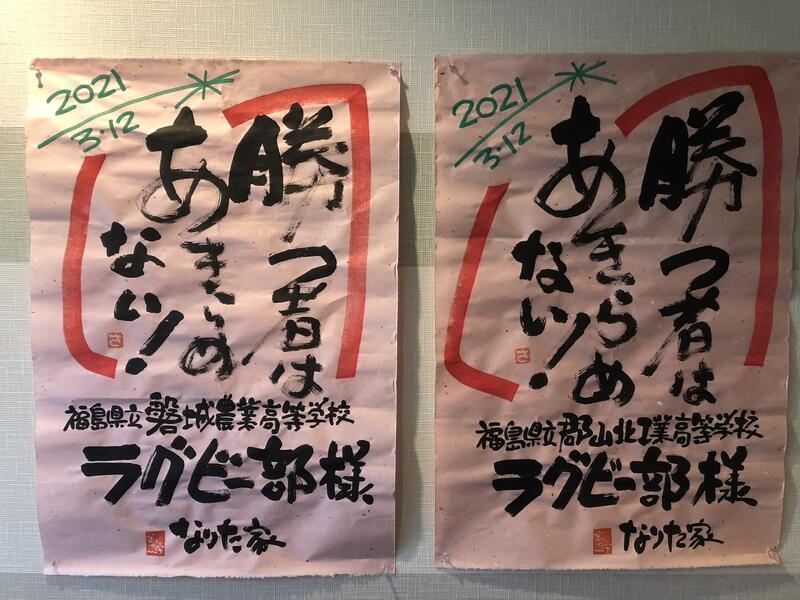 2021
3.12
勝つ者は
あきらめ
ない!
福島県立磐城農業高等学校
ラグビー部様
なりた家
2021
3.12
勝つ者は
あきらめ
ない!
福島県立郡山北工業高等学校
ラグビー部様
なりた家